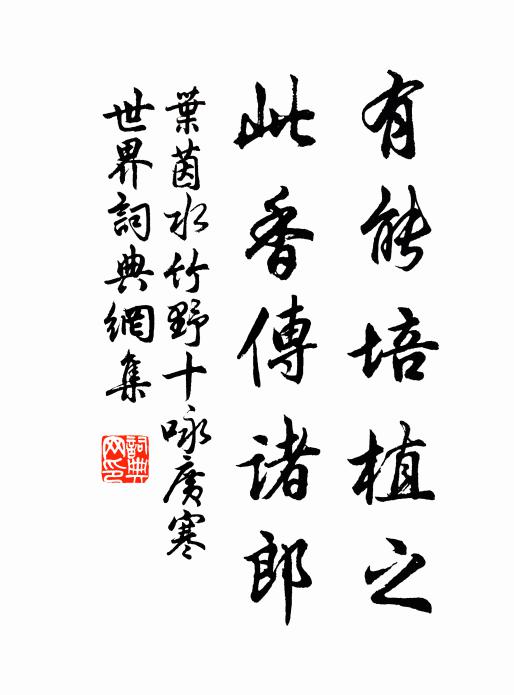 有能培植之
此香傳諸郎
葉茵水竹野十咏廣寒
世界詞典網集
詞典网印